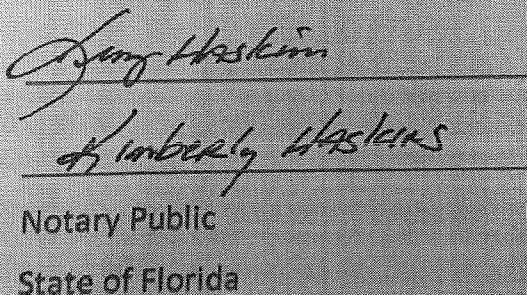 Haskins
Kimberly Haskins
Notary Public
State of Florida